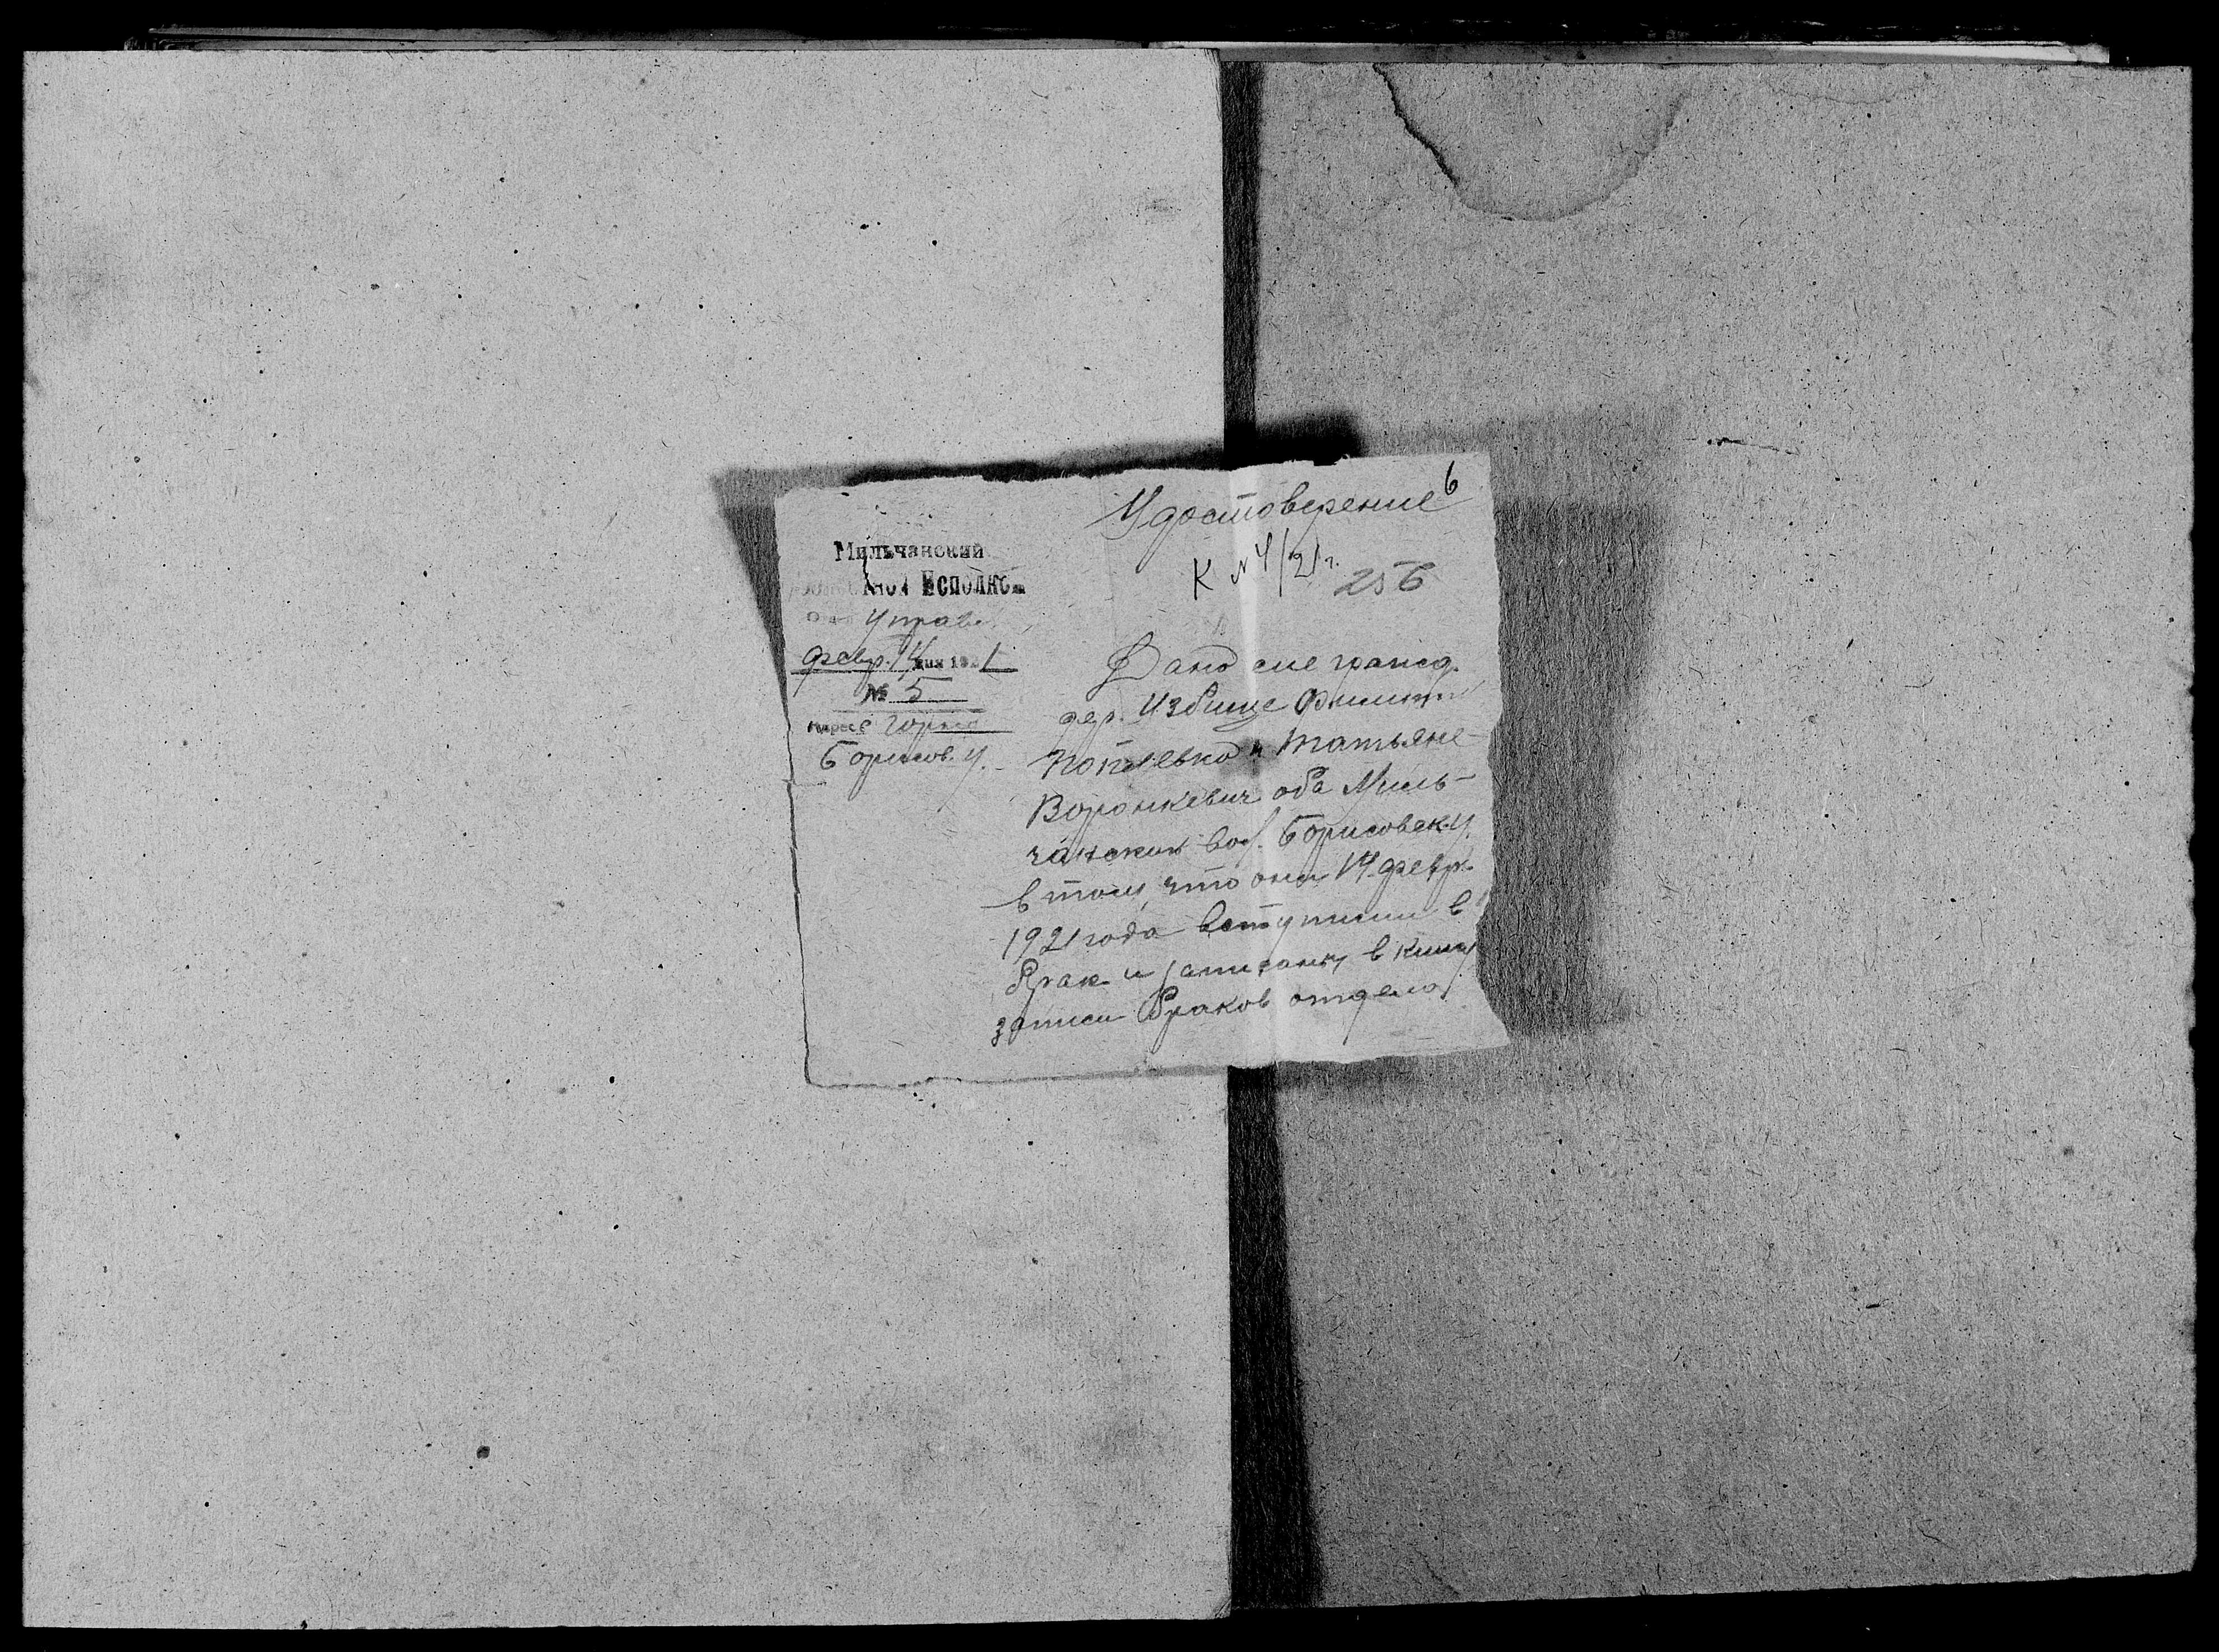 6
Удостоверение
К № 4/21 г.
256
Мильчанский
Исполком
Управ.
февр. 14 дня 1921
№ 5
Адрес
Борисов. у.
Дано сие гражд.
дер. Избище Филипп
Татьяне
Воронкевич оба Миль-
чанский вол. Борисовск. у.
в том, что они 14 февр.
1921 года вступили в
брак и записаны в книгу
записи браков отдела